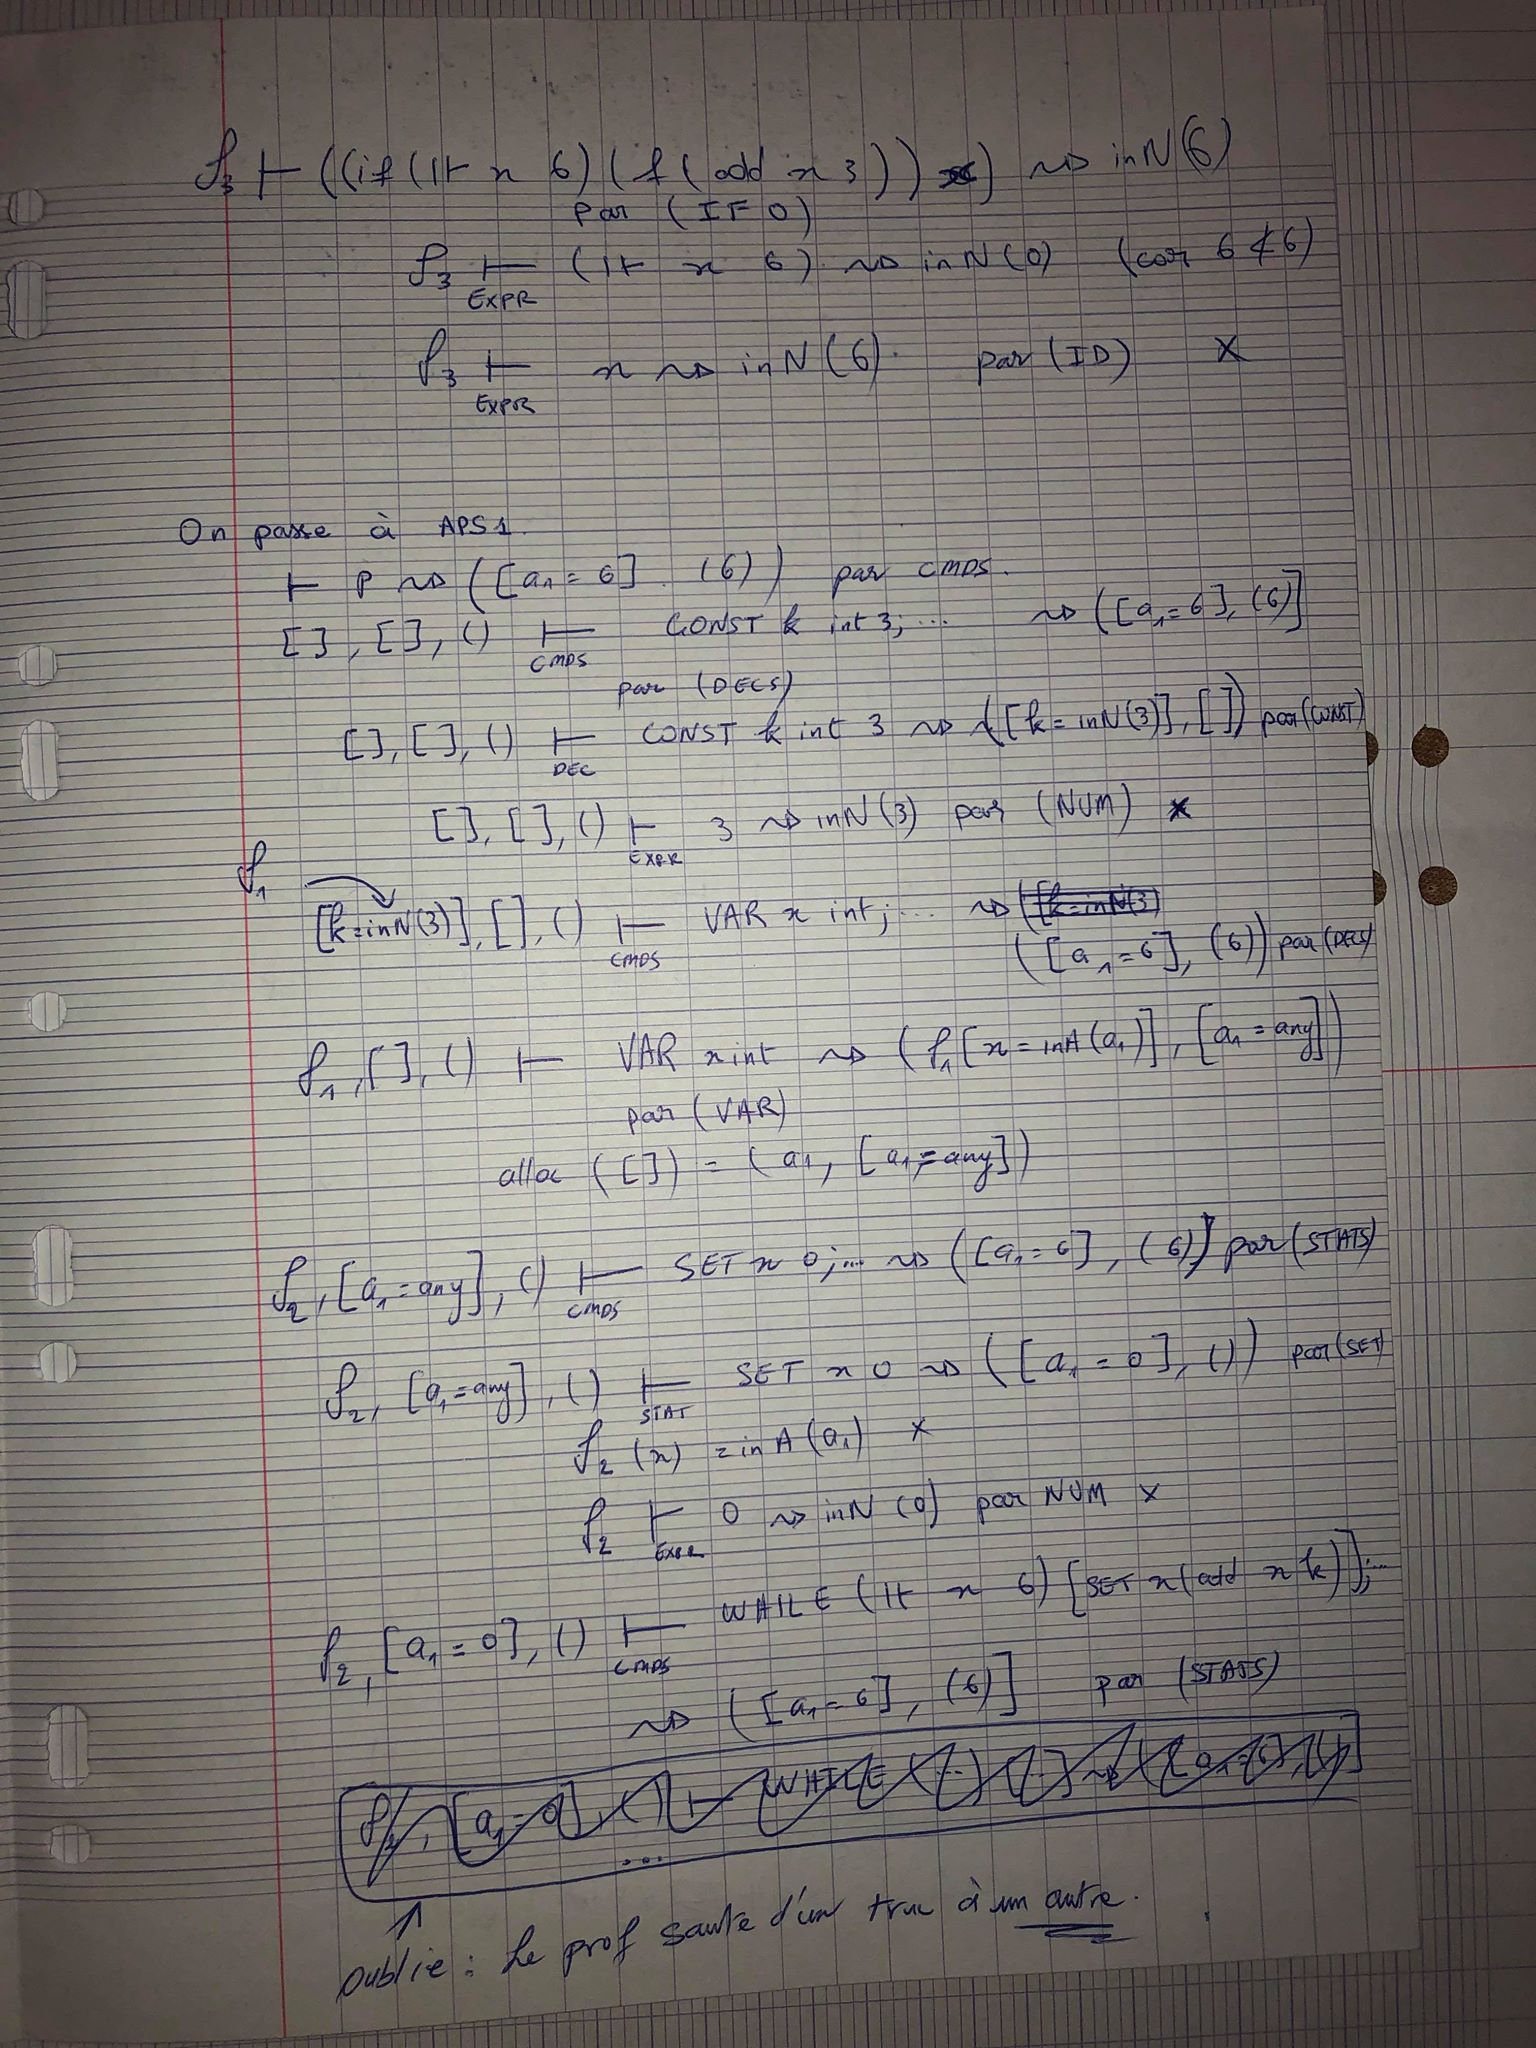 ρ₃ ⊢ ((if (lt x 6) (f (add x 3)) x) ⇝ inN(6)
par (IF 0)
ρ₃ ⊢ EXPR (lt x 6) ⇝ inN(0) (car 6 ≮ 6)
ρ₃ ⊢ EXPR x ⇝ inN(6). par (ID) ×
On passe à APS1.
⊢ P ⇝ ([a₁ = 6] . (6)) par CMDS.
[], [], () ⊢ CMDS CONST k int 3; ... ⇝ ([a₁=6], (6)]
par (DECS)
[], [], () ⊢ DEC CONST k int 3 ⇝ ([k = inN(3)], []) par (CONST)
[], [], () ⊢ EXPR 3 ⇝ inN(3) par (NUM) ×
ρ₁
[k=inN(3)], [], () ⊢ CMDS VAR x int; ... ⇝ ([k=inN(3)
([a₁=6], (6)) par (DECS)
ρ₁, [], () ⊢ VAR x int ⇝ (ρ₁[x = inA(a₁)], [a₁ = any])
par (VAR)
alloc ([]) = (a₁, [a₁ = any])
ρ₂, [a₁ = any], () ⊢ CMDS SET x 0; ... ⇝ ([a₁=6], (6)) par (STATS)
ρ₂, [a₁=any], () ⊢ STAT SET x 0 ⇝ ([a₁ = 0], ()) par (SET)
ρ₂ (x) = inA(a₁) ×
ρ₂ ⊢ EXPR 0 ⇝ inN (0) par NUM ×
ρ₂, [a₁ = 0], () ⊢ CMDS WHILE (lt x 6) [SET x (add x k)]; ...
⇝ ([a₁ = 6], (6)] par (STATS)
[a₁=0], () ⊢ WHILE (..) [..] ⇝
...
oublie : Le prof saute d'un truc à un autre.